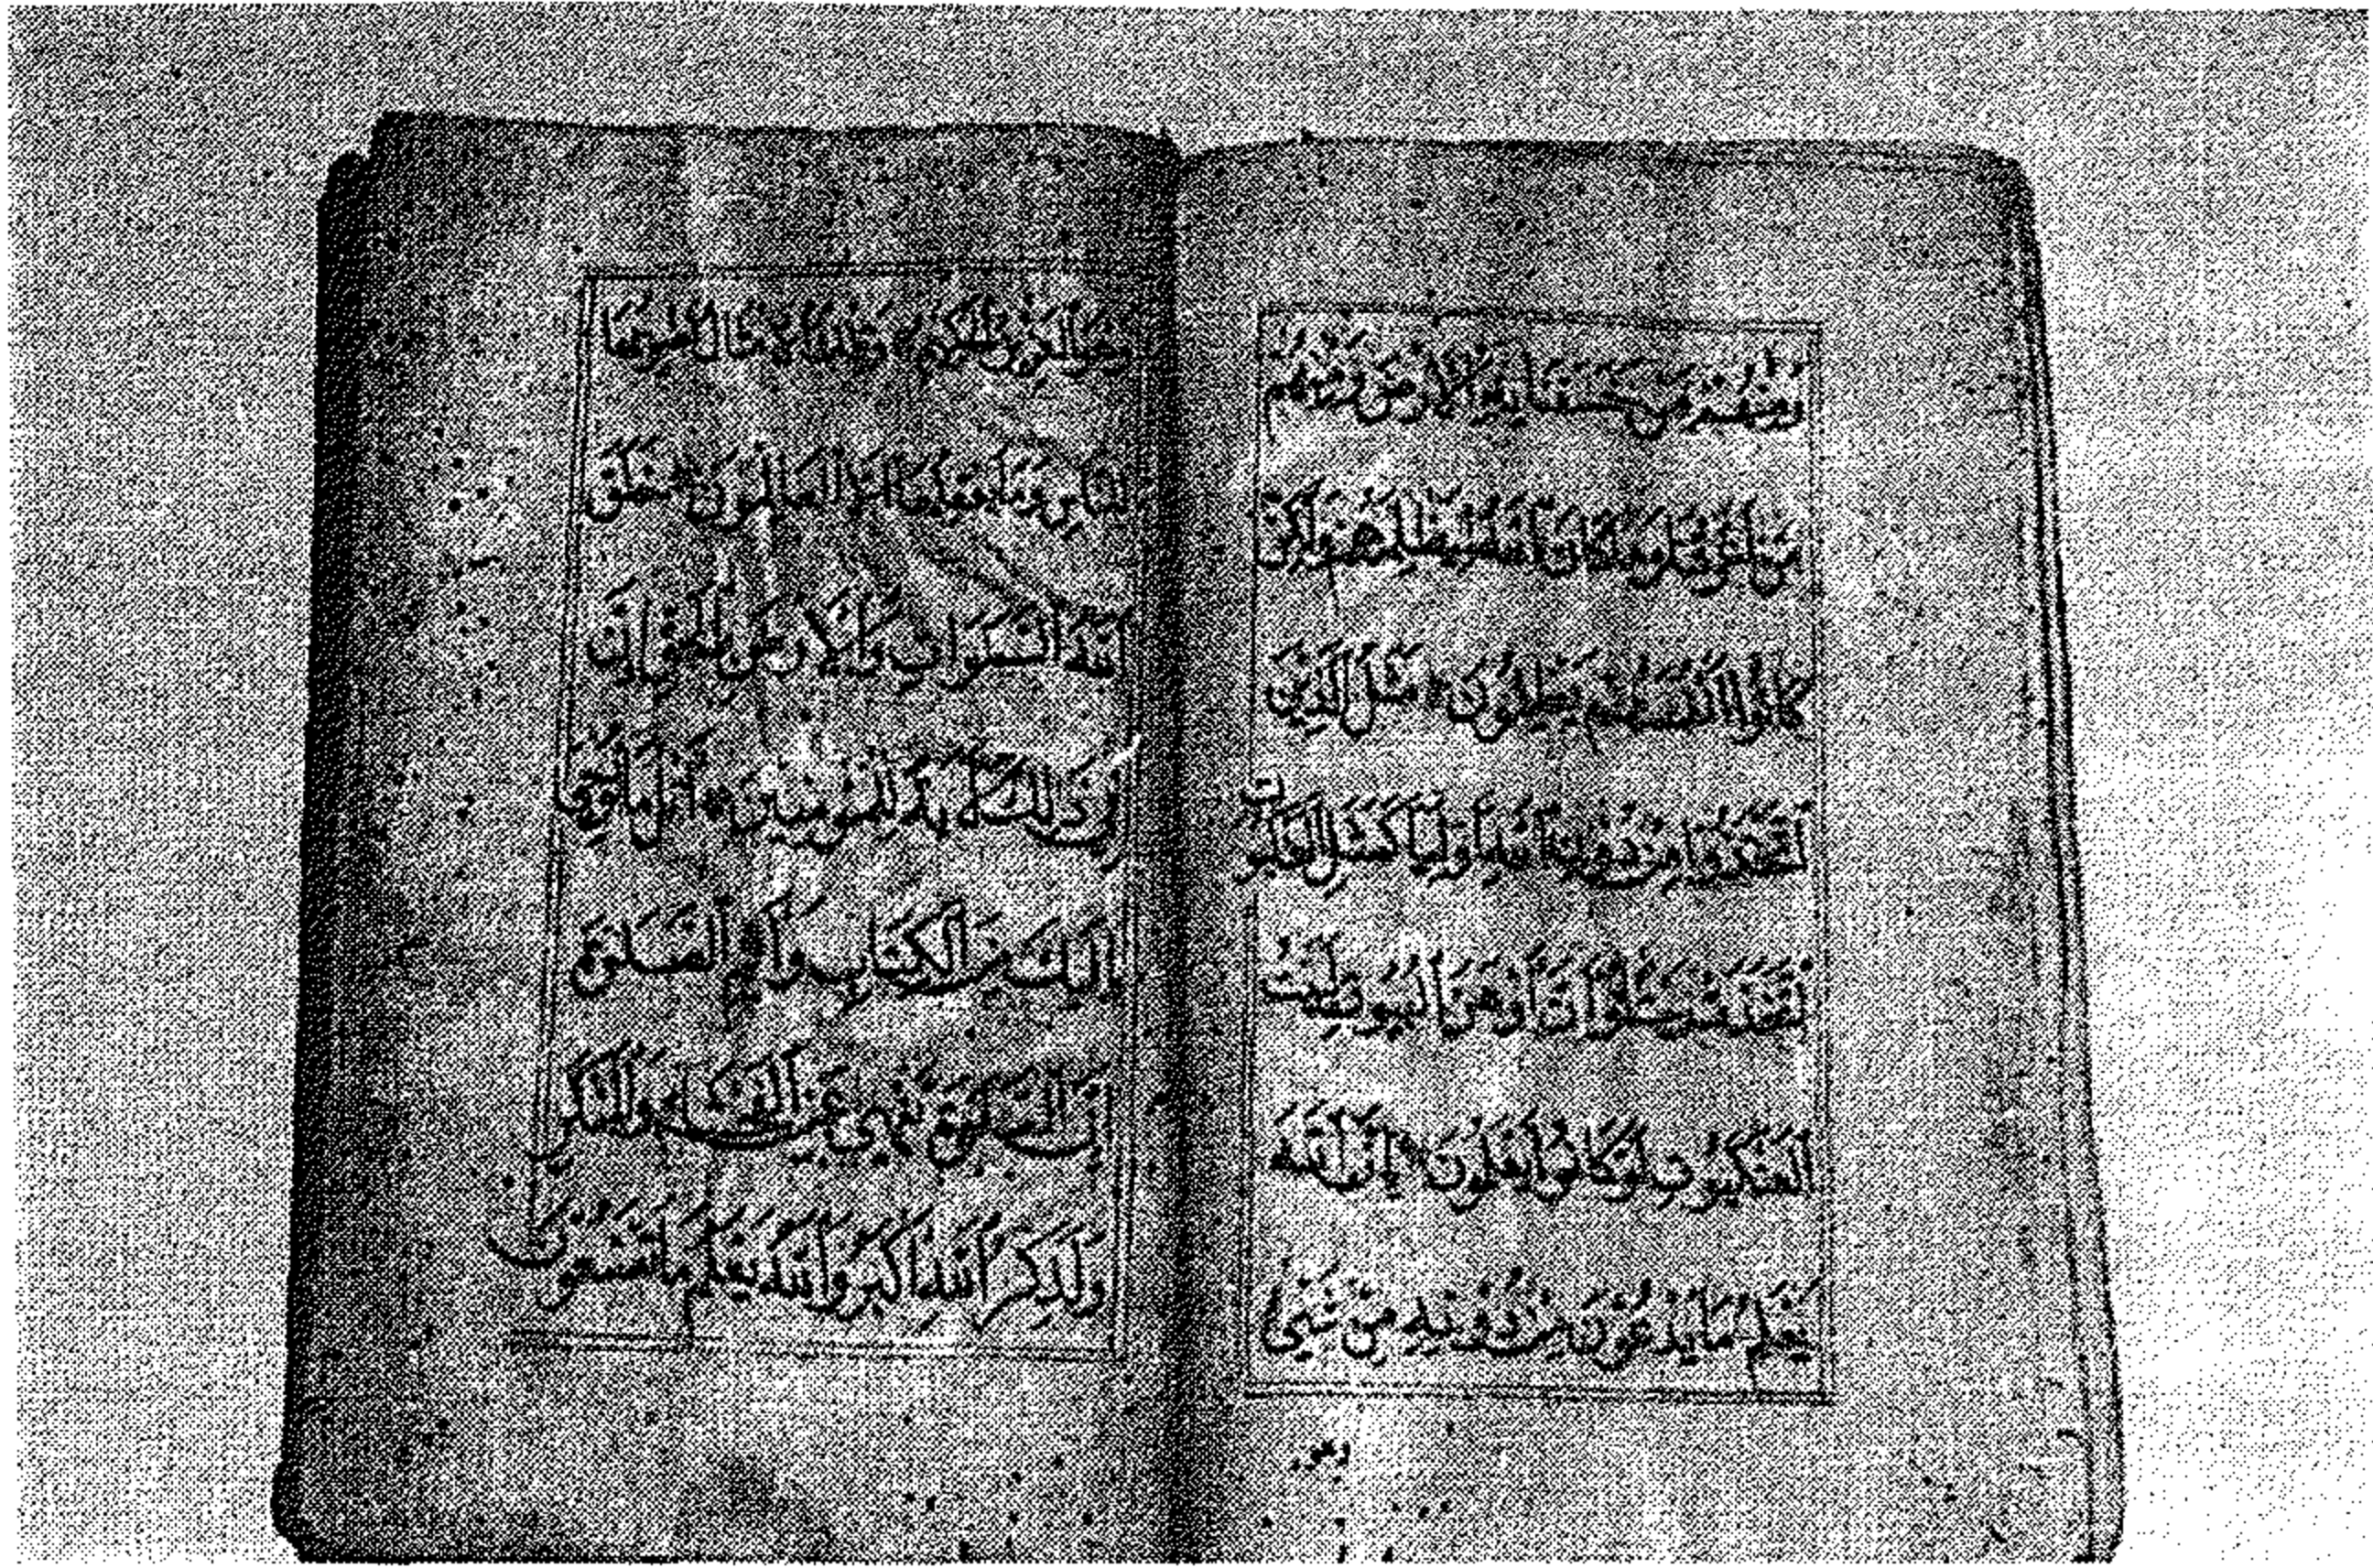 وَمِنْهُمْ مَنْ خَسَفْنَا بِهِ الْاَرْضَ وَمِنْهُمْ
مَنْ اَغْرَقْنَا وَمَا كَانَ اللّٰهُ لِيَظْلِمَهُمْ وَلٰكِنْ
كَانُوا اَنْفُسَهُمْ يَظْلِمُونَ مَثَلُ الَّذِينَ
اتَّخَذُوا مِنْ دُونِ اللّٰهِ اَوْلِيَآءَ كَمَثَلِ الْعَنْكَبُوتِ
اتَّخَذَتْ بَيْتًا وَاِنَّ اَوْهَنَ الْبُيُوتِ لَبَيْتُ
الْعَنْكَبُوتِ لَوْ كَانُوا يَعْلَمُونَ اِنَّ اللّٰهَ
يَعْلَمُ مَا يَدْعُونَ مِنْ دُونِهِ مِنْ شَيْءٍ
وهو
وَهُوَ الْعَزِيزُ الْحَكِيمُ وَتِلْكَ الْاَمْثَالُ نَضْرِبُهَا
لِلنَّاسِ وَمَا يَعْقِلُهَا اِلَّا الْعَالِمُونَ خَلَقَ
اللّٰهُ السَّمٰوَاتِ وَالْاَرْضَ بِالْحَقِّ اِنَّ
فِي ذٰلِكَ لَاٰيَةً لِلْمُؤْمِنِينَ اُتْلُ مَا اُوحِيَ
اِلَيْكَ مِنَ الْكِتَابِ وَاَقِمِ الصَّلٰوةَ
اِنَّ الصَّلٰوةَ تَنْهٰى عَنِ الْفَحْشَآءِ وَالْمُنْكَرِ
وَلَذِكْرُ اللّٰهِ اَكْبَرُ وَاللّٰهُ يَعْلَمُ مَا تَصْنَعُونَ